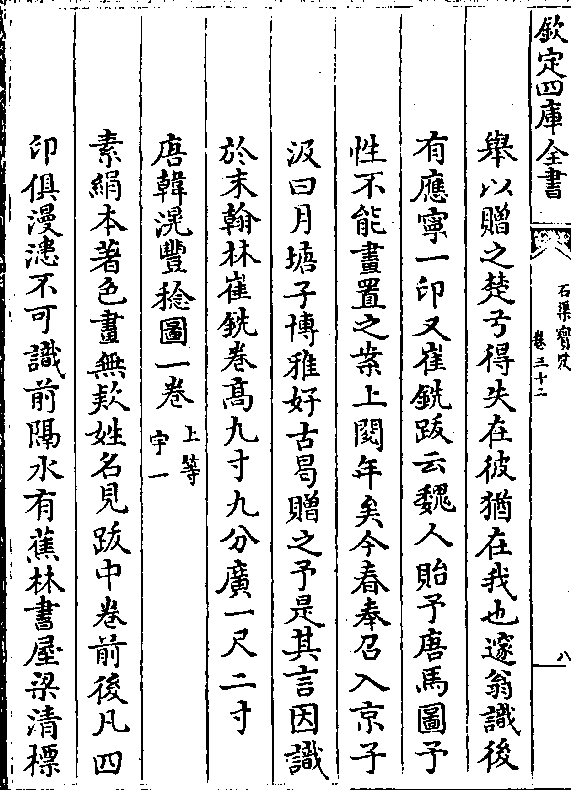 欽定四庫全書
石渠寳笈
卷三十二
八
舉以贈之楚弓得失在彼猶在我也邃翁識後
有應寧一印又崔銑跋云魏人貽予唐馬圖予
性不能畫置之案上閲年矣今春奉召入京子
汲曰月塘子博雅好古曷贈之予是其言因識
於末翰林崔銑卷髙九寸九分廣一尺二寸
唐韓滉豐稔圖一卷 上等
宇一
素絹本著色畫無款姓名見跋中卷前後凡四
印俱漫漶不可識前隔水有蕉林書屋梁清標